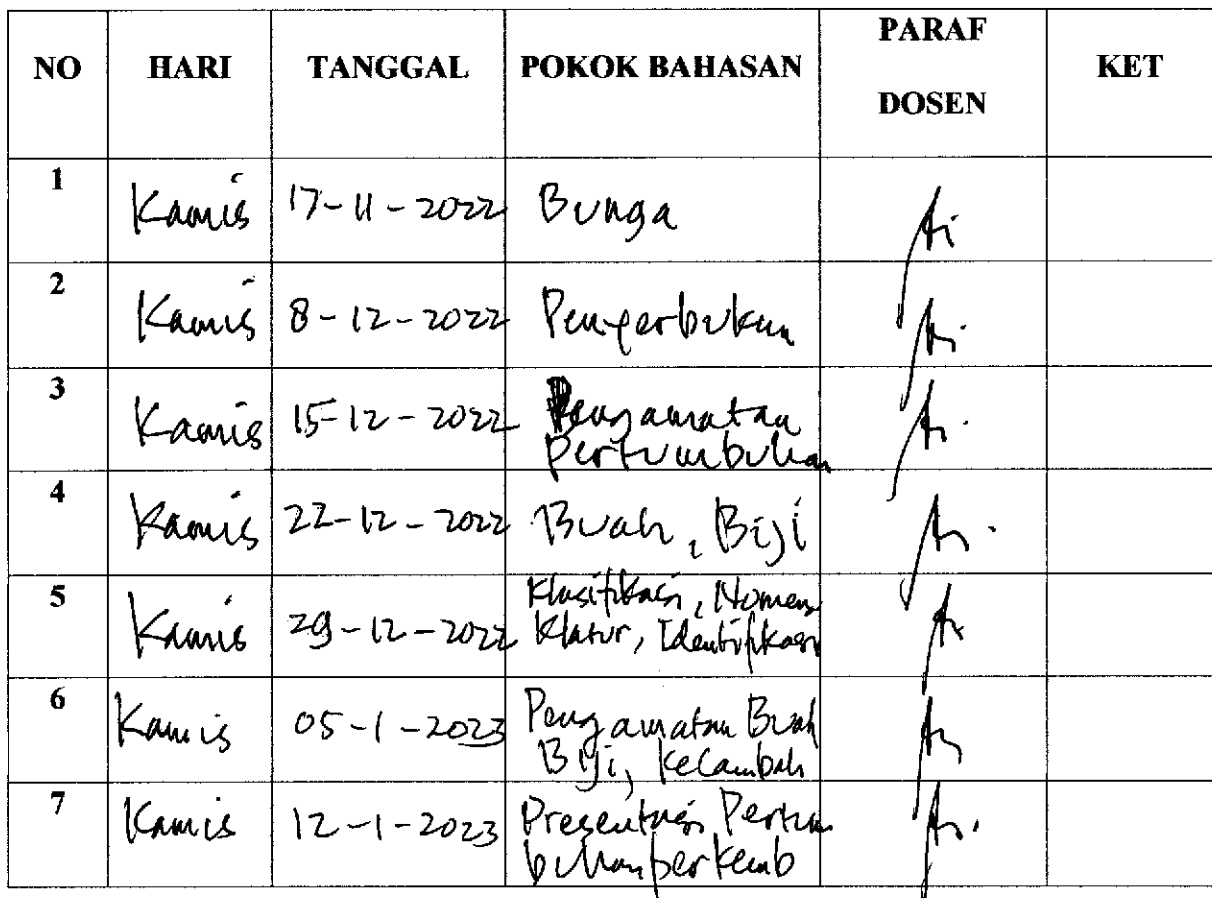 NO HARI TANGGAL POKOK BAHASAN PARAF DOSEN KET
1 Kamis 17-11-2022 Bunga
2 Kamis 8-12-2022 Pengerbukan
3 Kamis 15-12-2022 Pengamatan
Pertumbuhan
4 Kamis 22-12-2022 Buah, Biji
5 Kamis 29-12-2022 Klasifikasi, Nomen
Klatur, Identifikasi
6 Kamis 05-1-2023 Pengamatan Buah
Biji, Kecambah
7 Kamis 12-1-2023 Presentasi Pertum
buhan perkemb